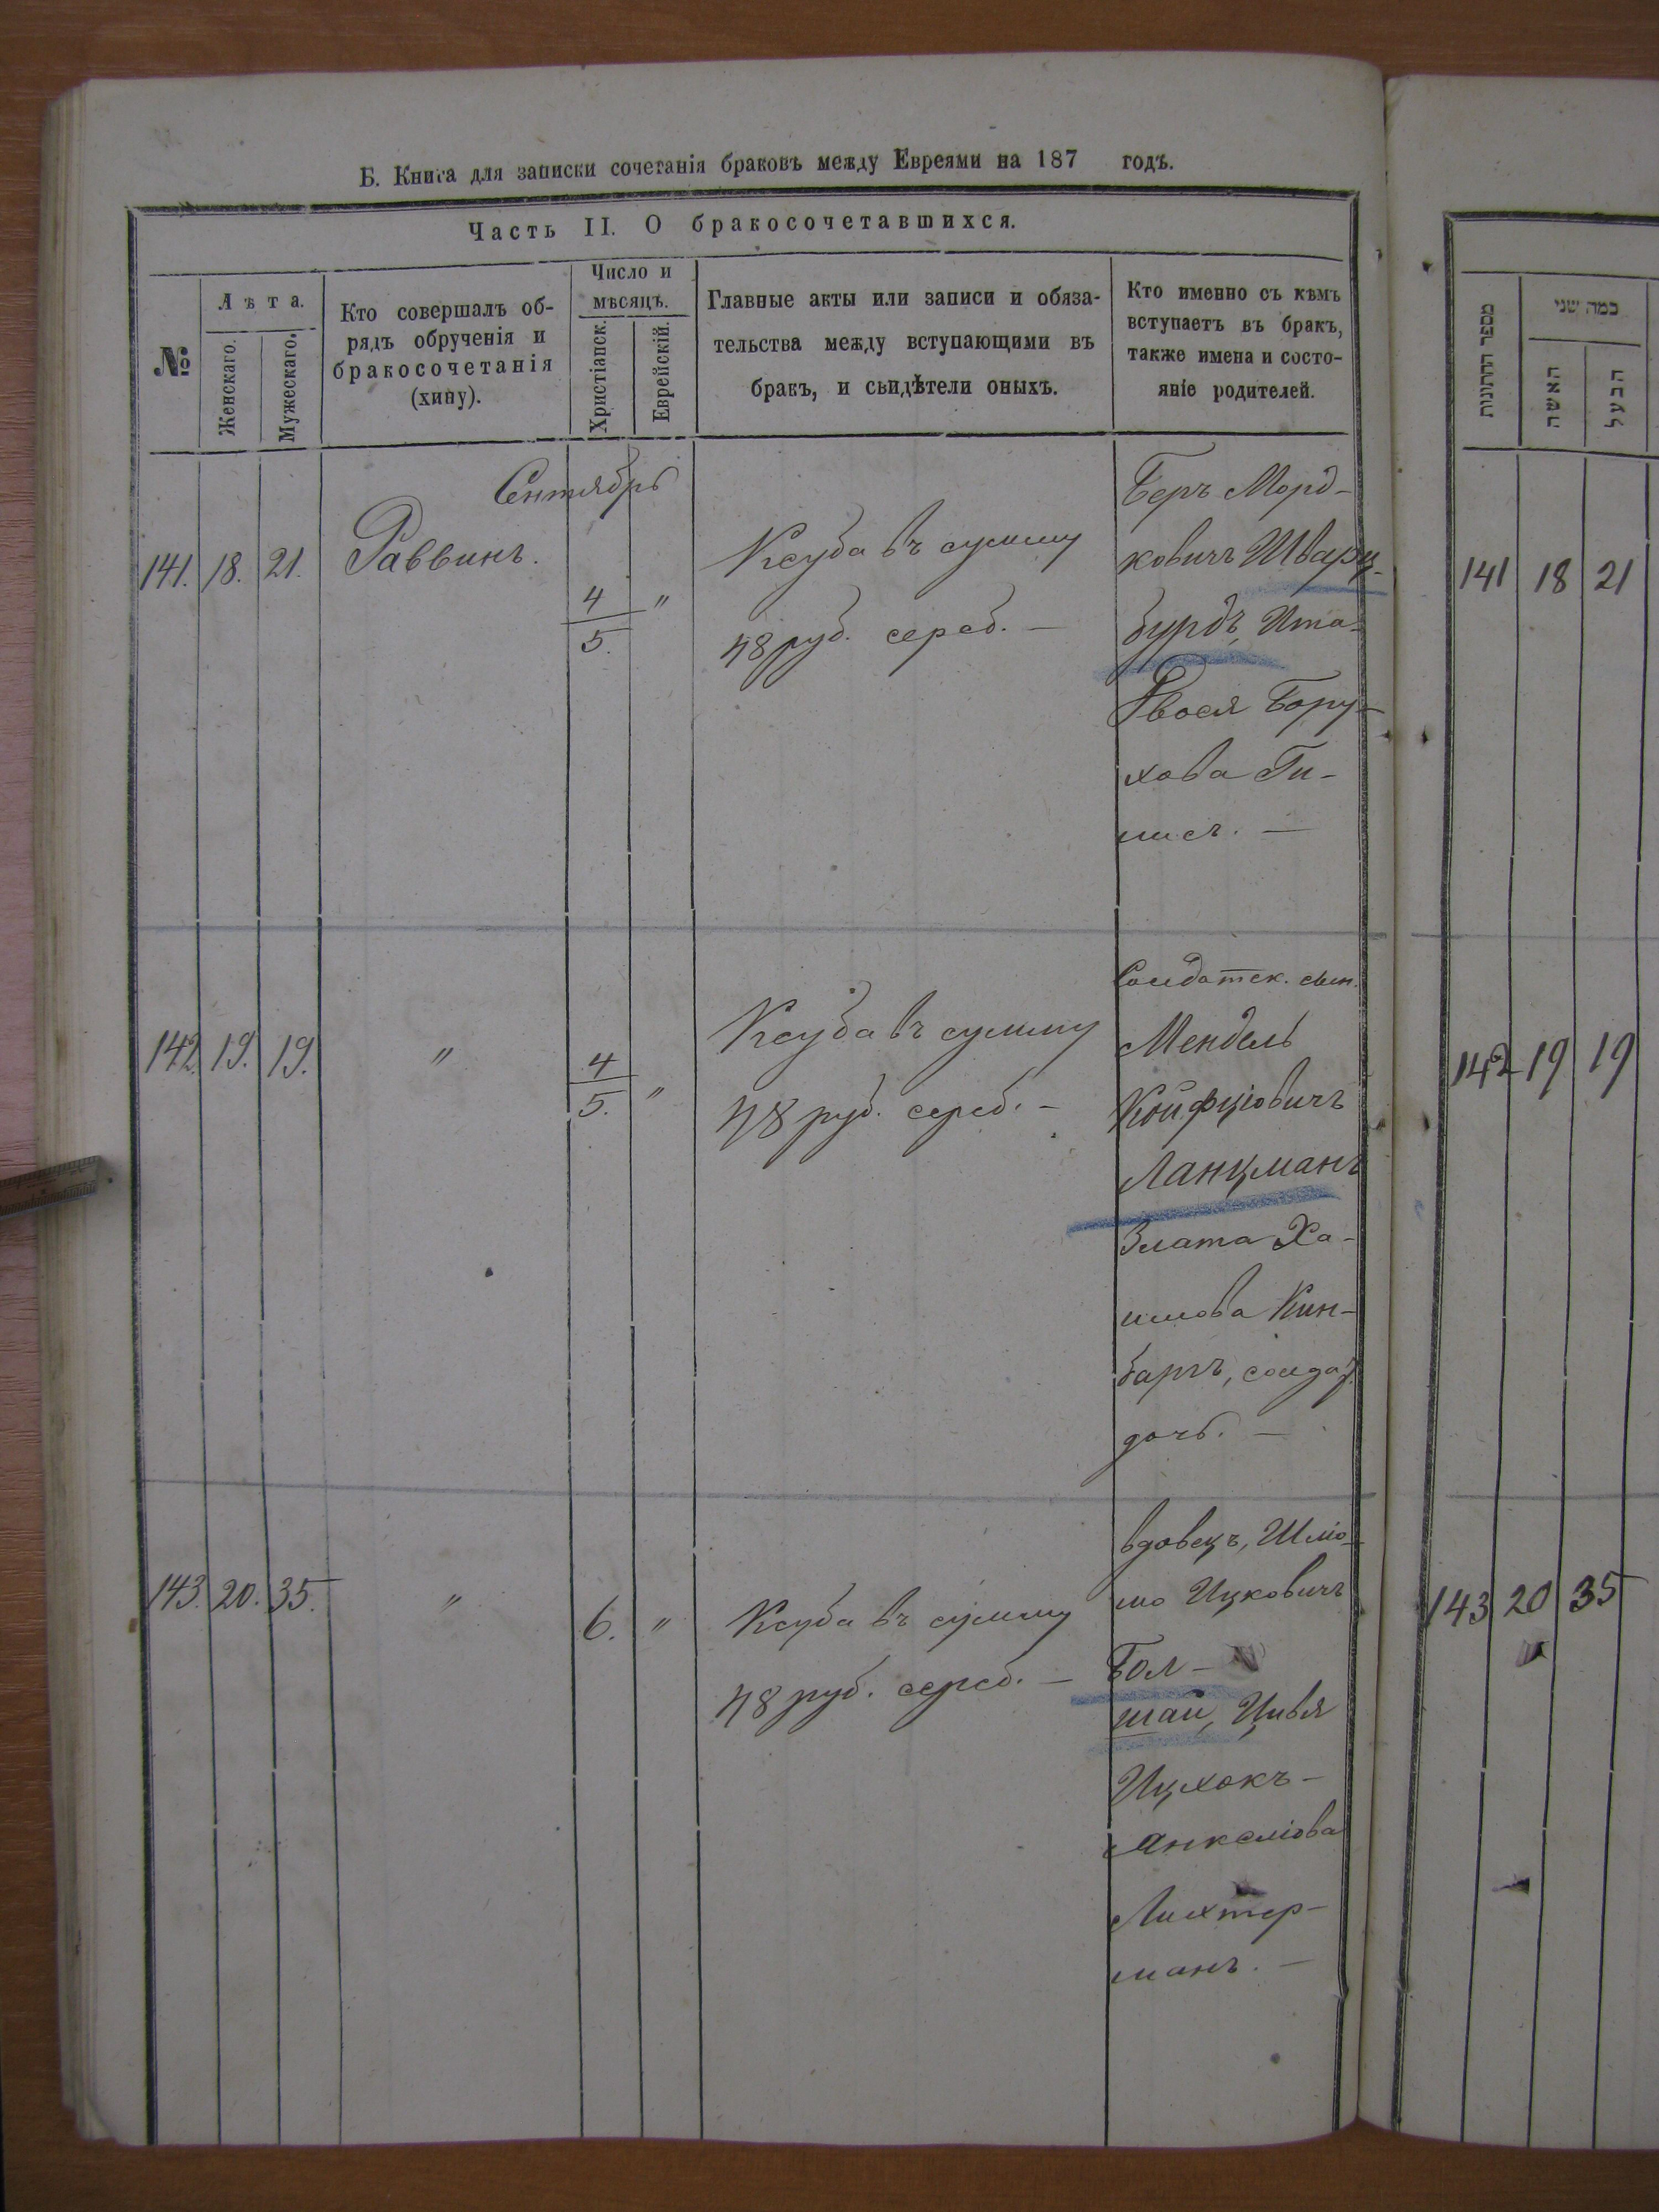 Б. Книга для записки сочетанія браковъ между Евреями на 187 годъ.
Часть II. О бракосочетавшихся.
№
Лѣта.
Женскаго.
Мужескаго.
Кто совершалъ об-
рядъ обрученія и
бракосочетанія
(хипу).
Число и
мѣсяцъ.
Христіанск.
Еврейскій.
Главные акты или записи и обяза-
тельства между вступающими въ
бракъ, и свидѣтели оныхъ.
Кто именно съ кѣмъ
вступаетъ въ бракъ,
также имена и состо-
яніе родителей.
מספר החתונות
כמה שני
האשה
הבעל
Сентябрь
141. 18. 21. Раввинъ.
4
5.
"
Ксуба въ сумму
48 руб. сереб. —
Беръ Морд-
ковичъ Шварц-
бурдъ, Ита-
Двося Бору-
хова Ги-
нисъ. —
141 18 21
142. 19. 19. "
4
5.
"
Ксуба въ сумму
48 руб. сереб. —
Солдатск. сын.
Мендель
Койфціовичъ
Ланцманъ
Злата Ха-
имова Кин-
баръ, солдат.
дочь. —
142 19 19
143. 20. 35. "
6. "
Ксуба въ сумму
48 руб. сереб. —
вдовецъ, Шліо-
мо Ицковичъ
Бол-
шай, Цивя
Ицхокъ-
Анкеліова
Лихтер-
манъ. —
143 20 35